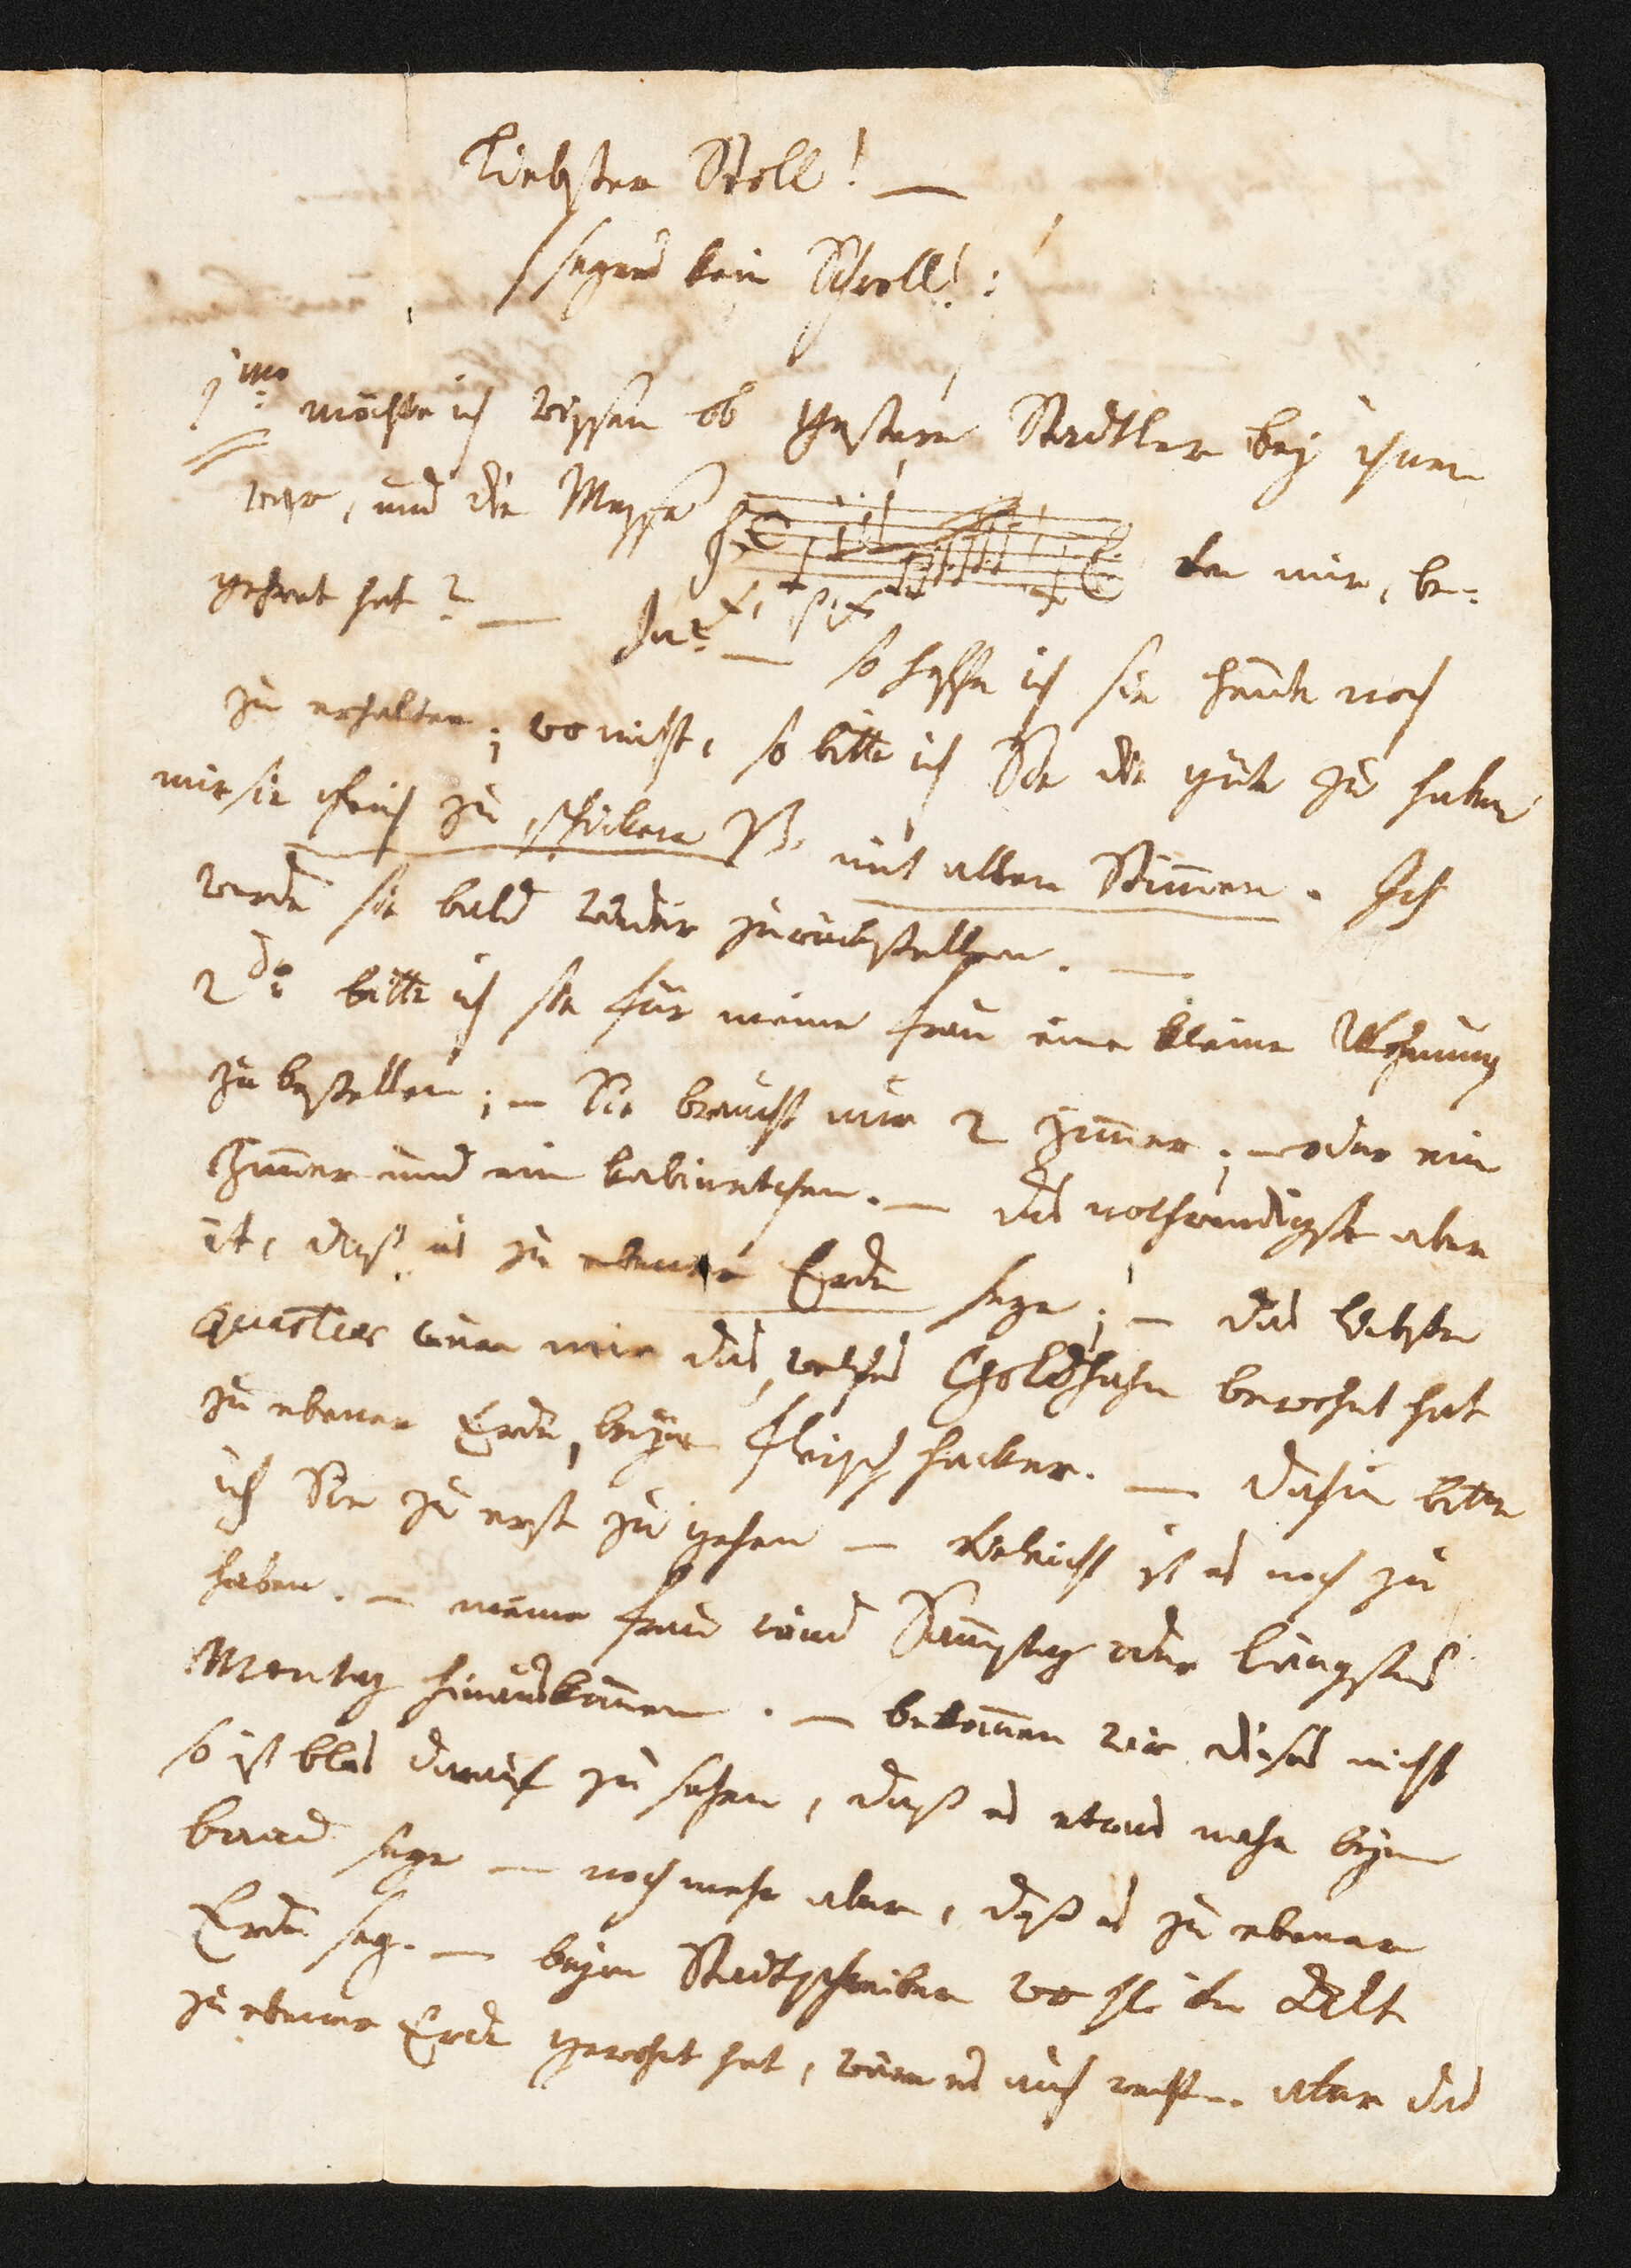 Liebster Stoll! —
/ seyens kein Schroll! :/
1mo: möchte ich wissen ob gestern Stadtler bey ihnen
war, und die Messe
von mir, be-
gehrt hat? — Ja? — so hoffe ich sie heute noch
zu erhalten; wo nicht, so bitte ich Sie die güte zu haben
mir sie gleich zu schicken NB. mit allen Stimmen. Ich
werde sie bald wieder zurückstellen. —
2do: bitte ich sie für meine frau eine kleine Wohnung
zu bestellen; — Sie braucht nur 2 Zimmer; — oder ein
Zimmer und ein kabinetchen. — das nothwendigste aber
ist, daß es zu ebener Erde seye; — das liebste
quartier wäre mir das, welches Goldhahn bewohnt hat
zu ebener Erde, beym fleischhacker. — dahin bitte
ich Sie zu erst zu gehen — vieleicht ist es noch zu
haben. — meine frau wird Samstag oder längstens
Montag hinauskommen. — bekommen wir dieses nicht
so ist blos darauf zu sehen, daß es etwas nahe beym
baad seye — noch mehr aber, daß es zu ebener
Erde sey. — beym Stadtschreiber wo H: v: Alt
zu ebener Erde gewohnt hat, wäre es auch recht — aber das